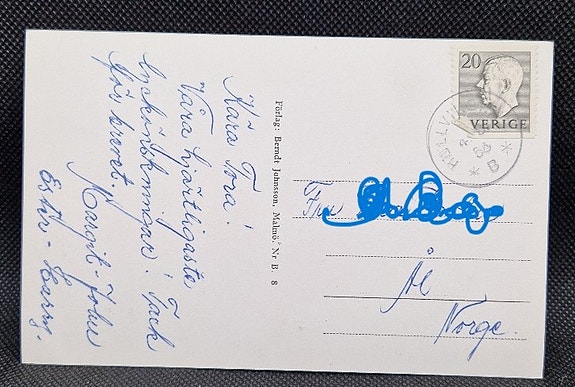 Kära Tora!
Våra hjärtligaste
lyckönskningar! Tack
för brevet.
Margit-John
Ester-Harry.
Förlag: Berndt Johnsson, Malmö. Nr B. 8
20
SVERIGE
B
Fru
Ål
Norge.